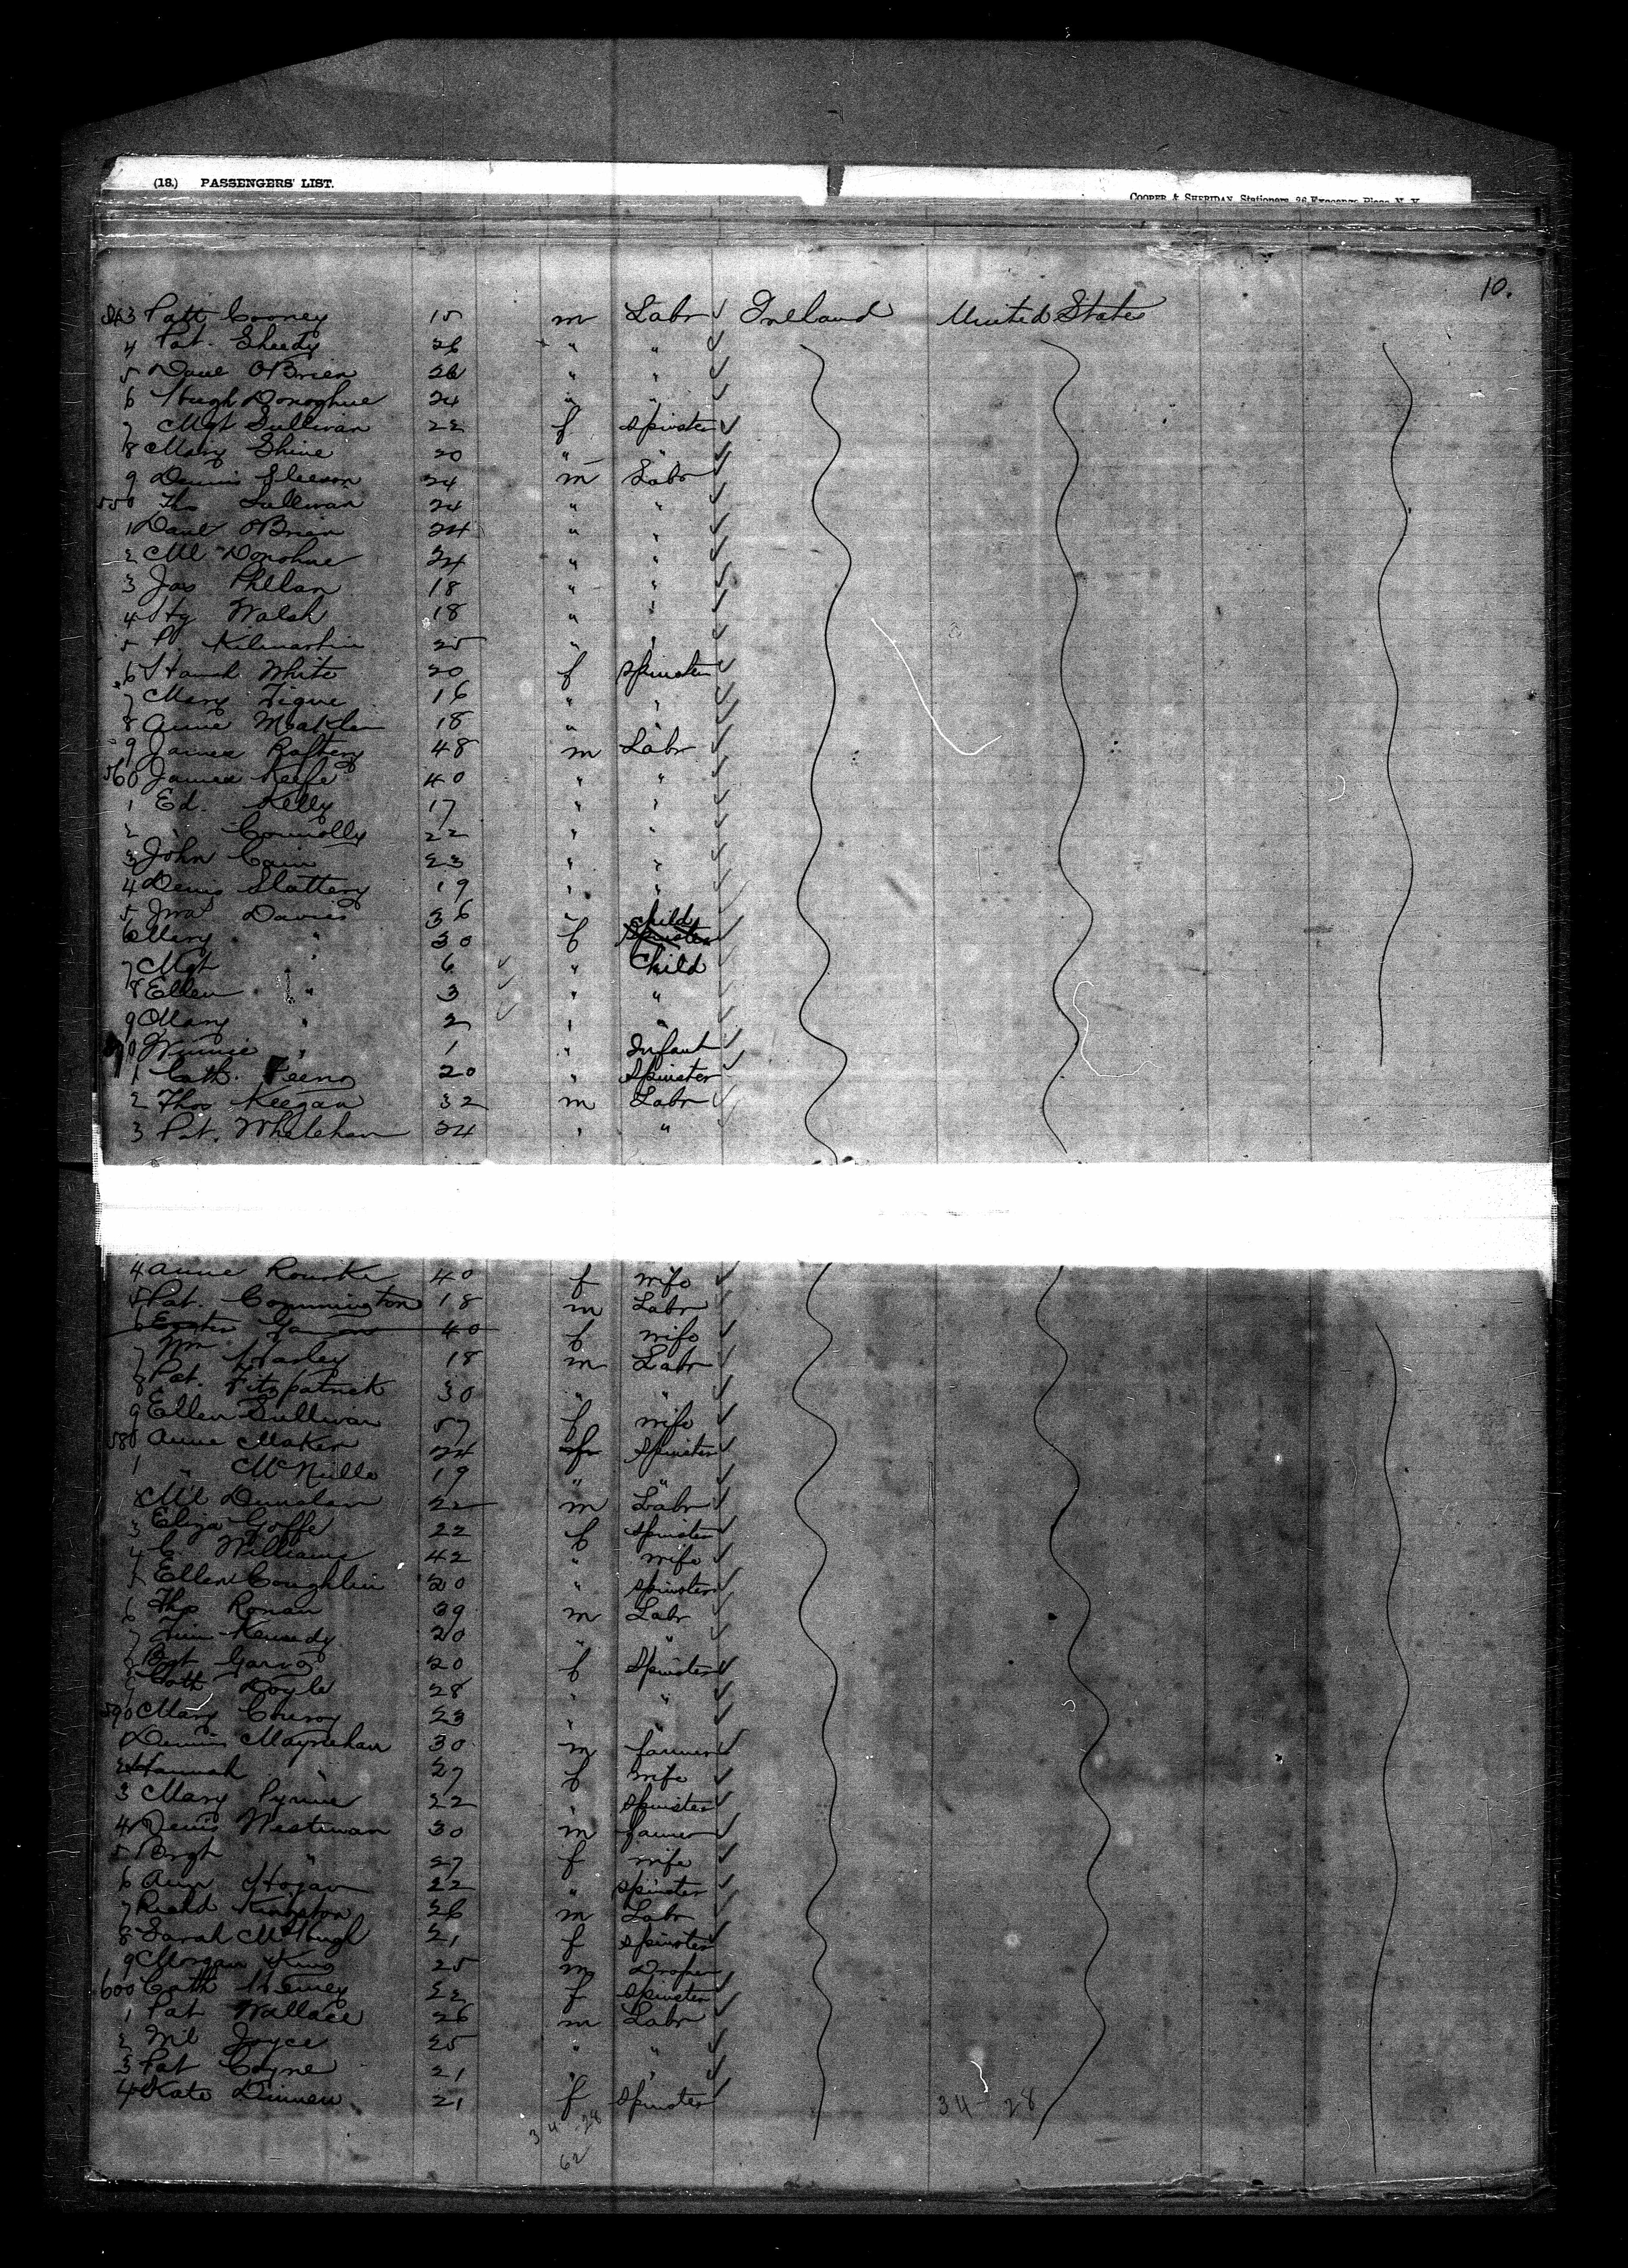 (18.) PASSENGERS' LIST.
COOPER & SHERIDAN Stationers, 26 Exchange Place N. Y.
10.
543 Patt Cooney 15 m Labr Ireland United States
4 Pat. Sheedy 26 " "
5 Danl O'Brien 26 " "
6 Hugh Donoghue 24 " "
7 Mgt Sullivan 22 f Spinster
8 Mary Shine 20 " "
9 Dennis Gleeson 24 m Labr
550 Tho Sullivan 24 " "
1 Danl O'Brien 24 " "
2 Ml Donohue 24 " "
3 Jas Phelan 18 " "
4 Hy Walsh 18 " "
5 P. Kilmartin 25 " "
6 Hanah White 20 f Spinster
7 Mary Tigue 16 " "
8 Anne 18 " "
9 James Raftery 48 m Labr
560 James Keefe 40 " "
1 Ed. Kelly 17 " "
2 " Connolly 22 " "
3 John Cain 23 " "
4 Denis Slattery 19 " "
5 Davies 36 "
6 Mary " 30 f Spinster child
7 Mgt " 6 " Child
8 Ellen " 3 " "
9 Mary " 2 " "
570 Winnie " 1 " Infant
1 Cath. Feeny 20 " Spinster
2 Thos Keegan 32 m Labr
3 Pat. Whelehan 24 " "
4 Anne Rourke 40 f wife
5 Pat. Commington 18 m Labr
6 40 f wife
7 Wm 18 m Labr
8 Pat. Fitzpatrick 30 " "
9 Ellen Sullivan 57 f wife
580 Anne Maker 24 f Spinster
1 " McNulla 19 " "
2 Ml 22 m Labr
3 Eliza Goffe 22 f Spinster
4 C Williams 42 " wife
5 Ellen Coughlin 20 " Spinster
6 Tho Ronan 39 m Labr
7 Tim Kennedy 20 " "
8 Bgt Garvey 20 f Spinster
9 Cath Doyle 28 " "
590 Mary 23 " "
1 Dennis Moynehan 30 m farmer
2 Hannah " 27 f wife
3 Mary Pyrine 22 " Spinster
4 Denis Westwan 30 m farmer
5 Brgt " 27 f wife
6 Ann Hogan 22 " Spinster
7 Richd Kingston 26 m Labr
8 Sarah McHugh 21 f Spinster
9 Morgan King 25 m Draper
600 Cath 22 f Spinster
1 Pat Wallace 26 m Labr
2 Ml Joyce 25 " "
3 Pat Coyne 21 " "
4 Kate Dinnen 21 f Spinster
34-28 34-28
62